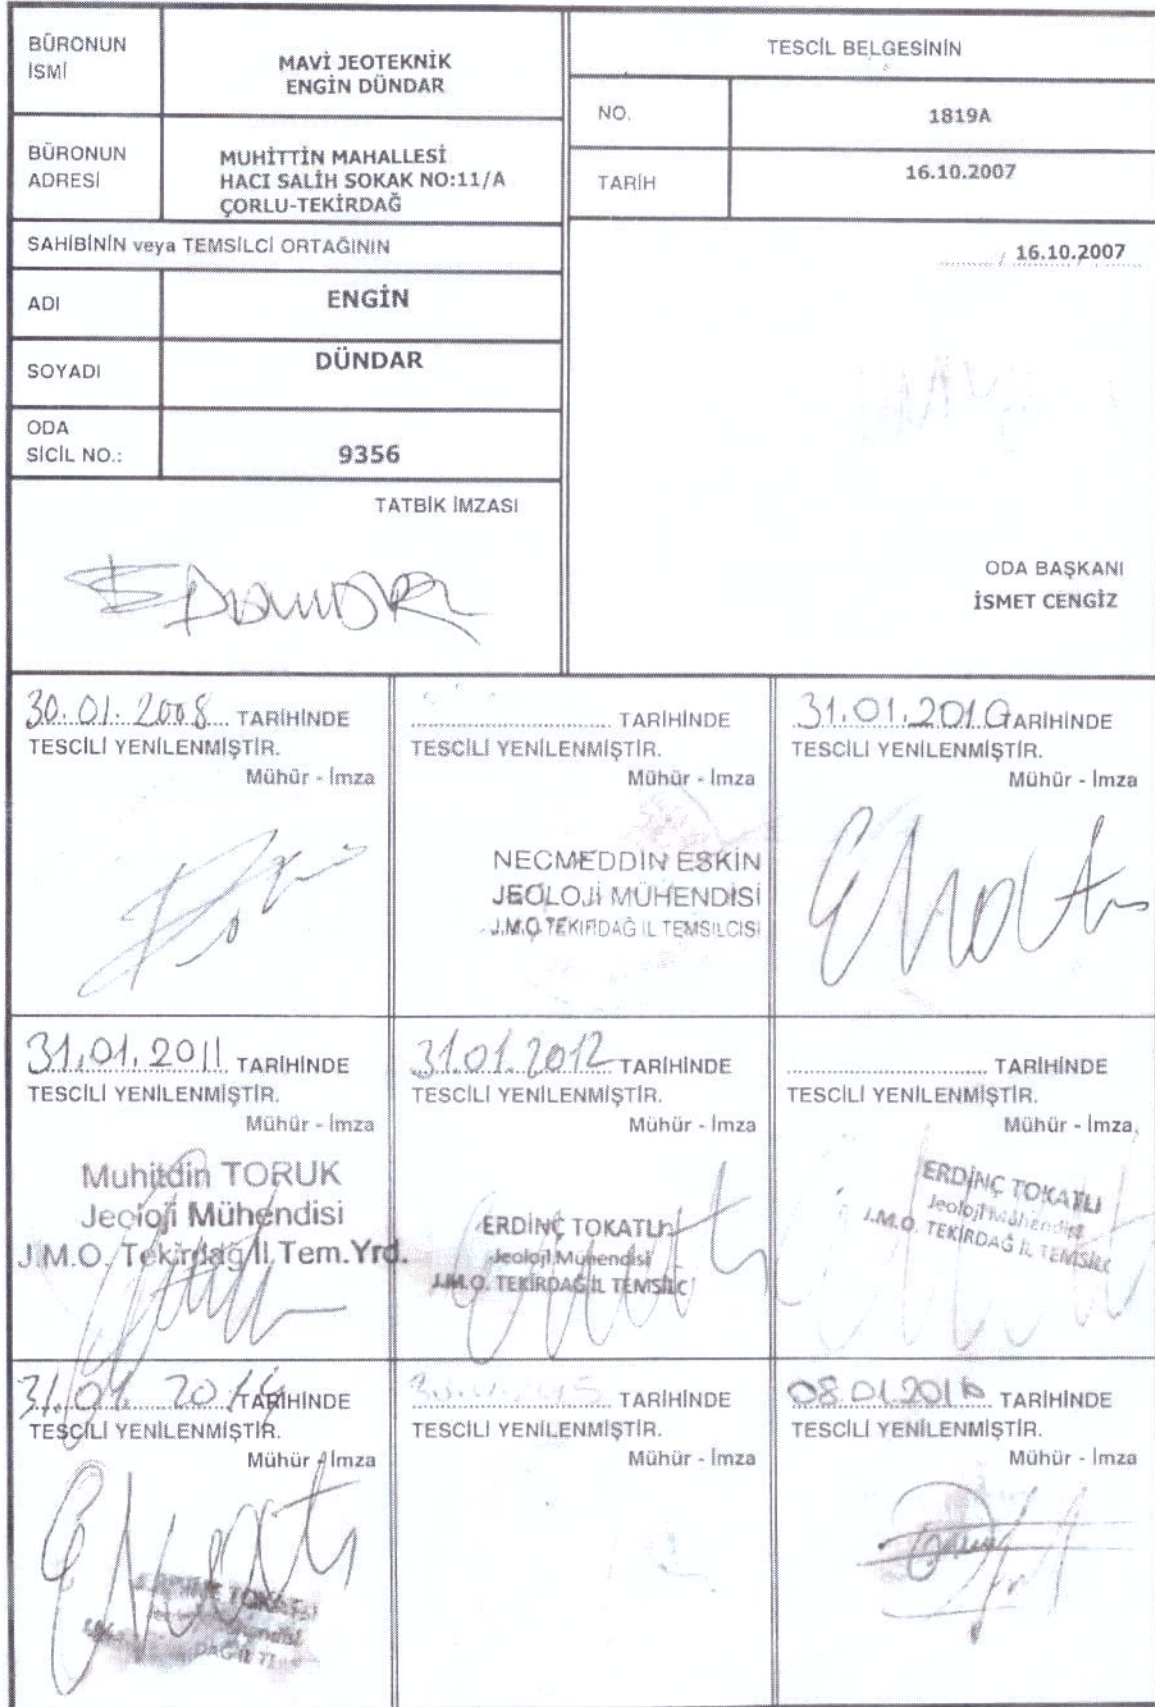 BÜRONUN
İSMİ
MAVİ JEOTEKNİK
ENGİN DÜNDAR
BÜRONUN
ADRESİ
MUHİTTİN MAHALLESİ
HACI SALİH SOKAK NO:11/A
ÇORLU-TEKİRDAĞ
SAHİBİNİN veya TEMSİLCİ ORTAĞININ
ADI
ENGİN
SOYADI
DÜNDAR
ODA
SİCİL NO.:
9356
TATBİK İMZASI
TESCİL BELGESİNİN
NO.
1819A
TARİH
16.10.2007
16.10.2007
ODA BAŞKANI
İSMET CENGİZ
30.01.2008 TARİHİNDE
TESCİLİ YENİLENMİŞTİR.
Mühür - İmza
TARİHİNDE
TESCİLİ YENİLENMİŞTİR.
Mühür - İmza
NECMEDDİN ESKİN
JEOLOJİ MÜHENDİSİ
J.M.O TEKİRDAĞ İL TEMSİLCİSİ
31.01.2010 TARİHİNDE
TESCİLİ YENİLENMİŞTİR.
Mühür - İmza
31.01.2011 TARİHİNDE
TESCİLİ YENİLENMİŞTİR.
Mühür - İmza
Muhitdin TORUK
Jeoloji Mühendisi
J.M.O. Tekirdağ İl Tem.Yrd.
31.01.2012 TARİHİNDE
TESCİLİ YENİLENMİŞTİR.
Mühür - İmza
ERDİNÇ TOKATLI
Jeoloji Mühendisi
J.M.O. TEKİRDAĞ İL TEMSİLC
TARİHİNDE
TESCİLİ YENİLENMİŞTİR.
Mühür - İmza
ERDİNÇ TOKATLI
Jeoloji Mühendisi
J.M.O. TEKİRDAĞ İL TEMSİLC
31.01.2014 TARİHİNDE
TESCİLİ YENİLENMİŞTİR.
Mühür - İmza
TARİHİNDE
TESCİLİ YENİLENMİŞTİR.
Mühür - İmza
08.01.2016 TARİHİNDE
TESCİLİ YENİLENMİŞTİR.
Mühür - İmza